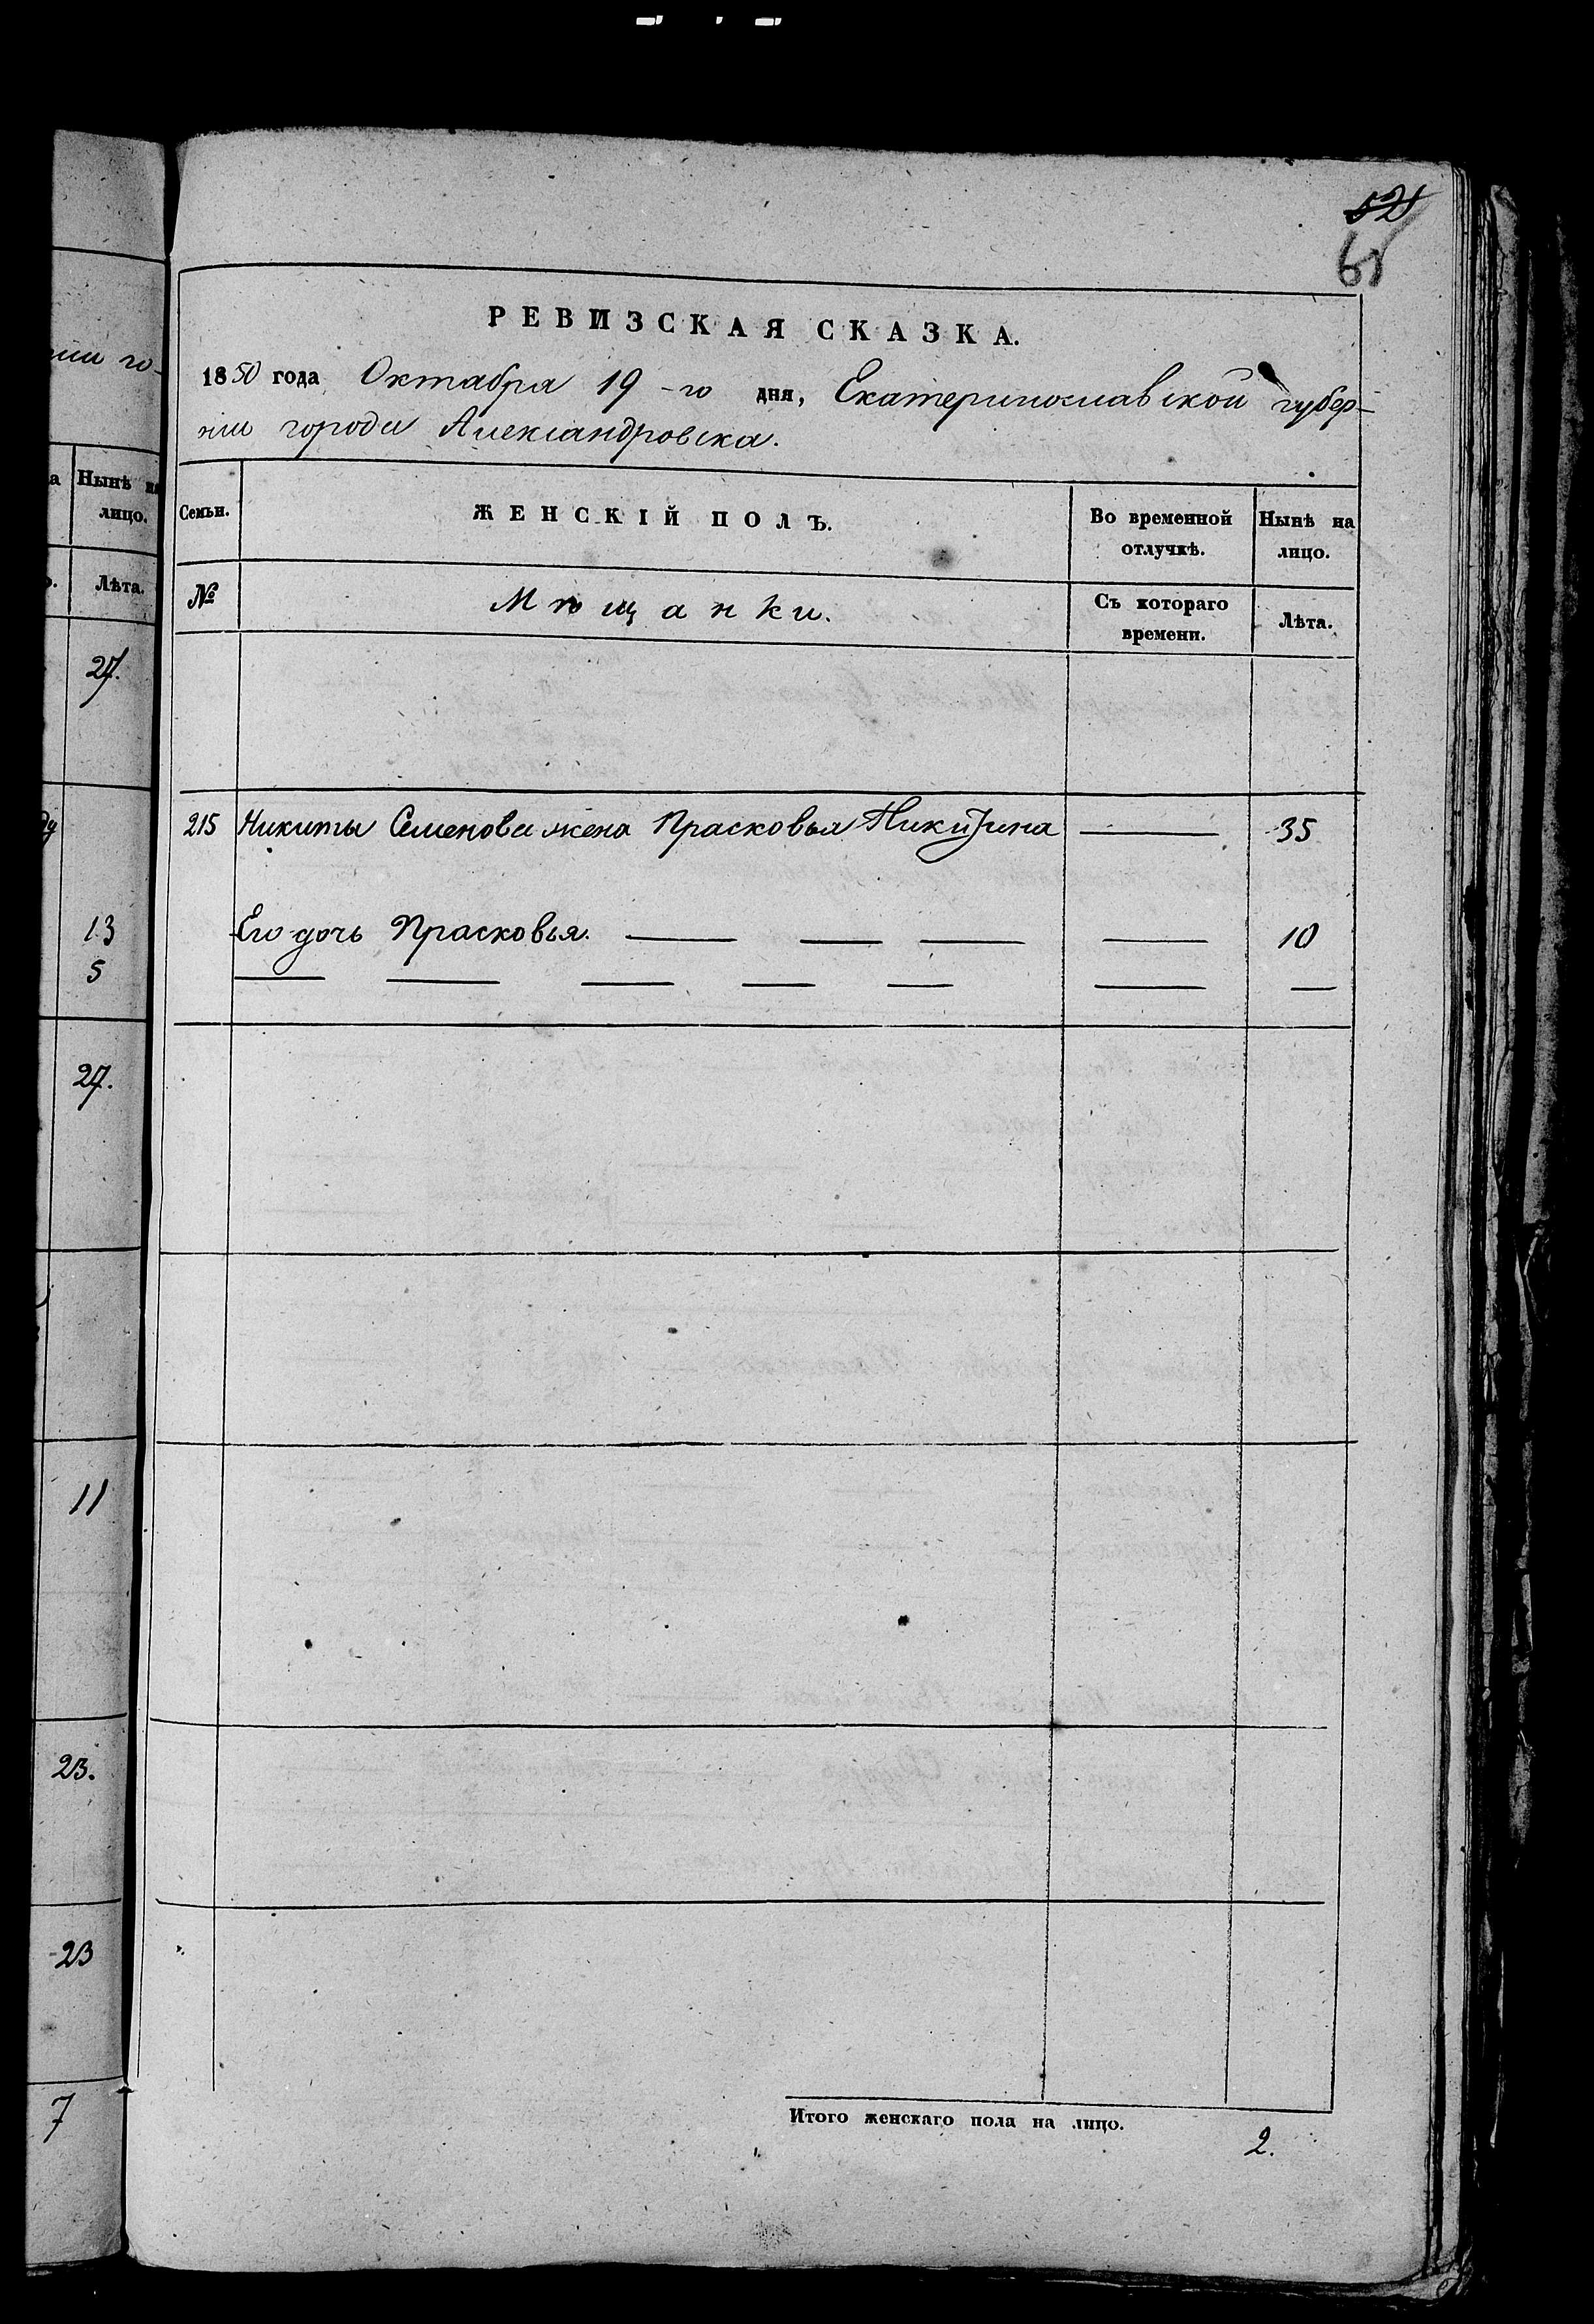 52
65
РЕВИЗСКАЯ СКАЗКА.
1850 года Октября 19-го дня, Екатеринославской губер-
нии города Александровска.
нии го-
Нынѣ на
лицо.
Лѣта.
27.
13
5
27.
11
23.
23
7
Семьи.
ЖЕНСКІЙ ПОЛЪ.
Во временной
отлучкѣ.
Нынѣ на
лицо.
№
Мѣщанки.
Съ котораго
времени.
Лѣта.
215 Никиты Семенова жена Прасковья Никитина 35
Его дочь Прасковья. 10
Итого женскаго пола на лицо. 2.